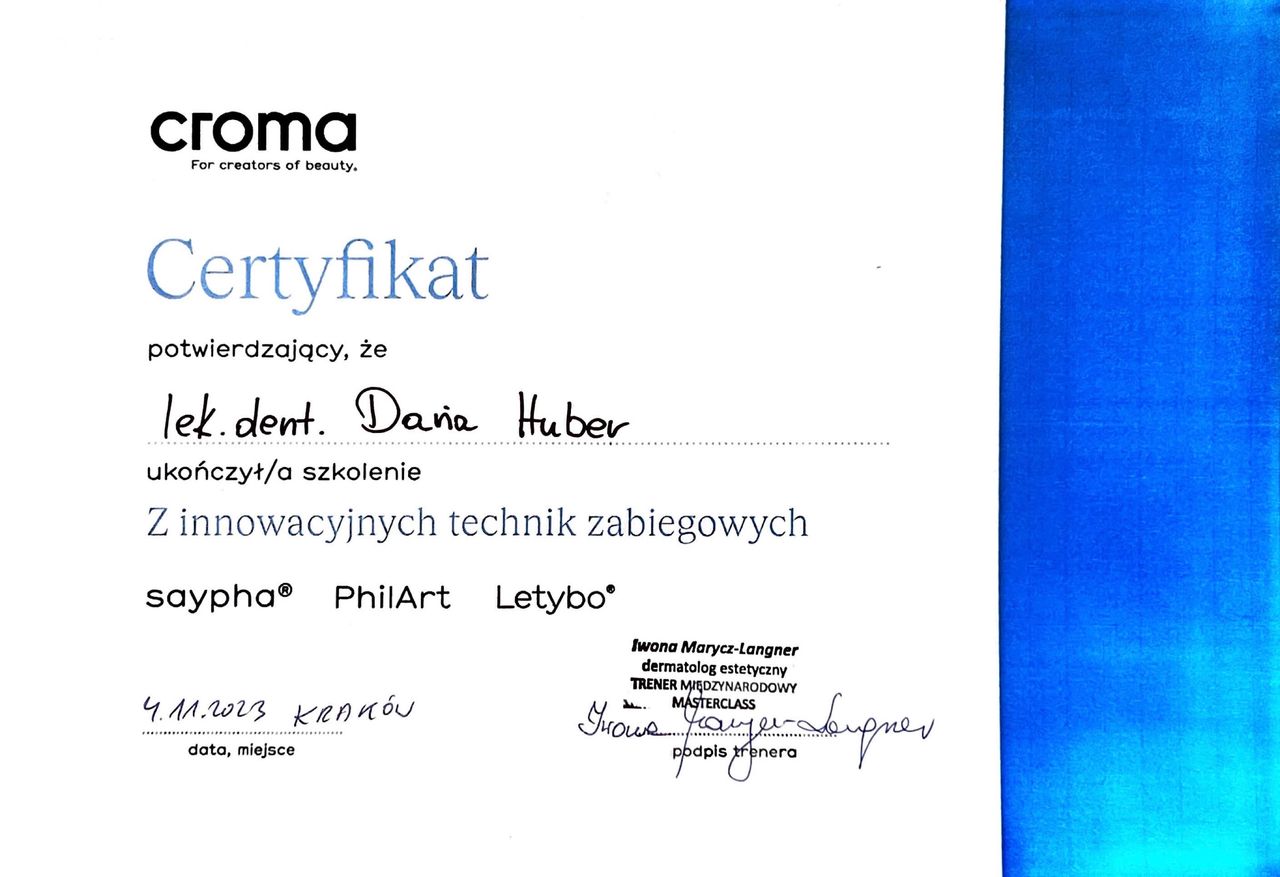 croma
For creators of beauty.
Certyfikat
potwierdzający, że
lek. dent. Daria Huber
ukończył/a szkolenie
Z innowacyjnych technik zabiegowych
saypha® PhilArt Letybo®
Iwona Marycz-Langner
dermatolog estetyczny
TRENER MIĘDZYNARODOWY
MASTERCLASS
4.11.2023 KRAKÓW
Iwona Marycz-Langner
data, miejsce
podpis trenera